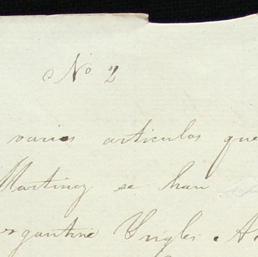 No 2
varios articulos que
Martinez se han
ergantin Yngles. A